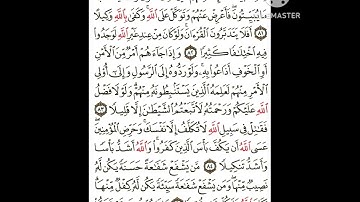 مَا يُبَيِّتُونَ فَأَعْرِضْ عَنْهُمْ وَتَوَكَّلْ عَلَى اللَّهِ وَكَفَى بِاللَّهِ وَكِيلًا
٨١ أَفَلَا يَتَدَبَّرُونَ الْقُرْءَانَ وَلَوْ كَانَ مِنْ عِندِ غَيْرِ اللَّهِ لَوَجَدُوا
فِيهِ اخْتِلَافًا كَثِيرًا ٨٢ وَإِذَا جَاءَهُمْ أَمْرٌ مِّنَ الْأَمْنِ
أَوِ الْخَوْفِ أَذَاعُوا بِهِ وَلَوْ رَدُّوهُ إِلَى الرَّسُولِ وَإِلَى أُولِي
الْأَمْرِ مِنْهُمْ لَعَلِمَهُ الَّذِينَ يَسْتَنبِطُونَهُ مِنْهُمْ وَلَوْلَا فَضْلُ
اللَّهِ عَلَيْكُمْ وَرَحْمَتُهُ لَاتَّبَعْتُمُ الشَّيْطَانَ إِلَّا قَلِيلًا ٨٣
فَقَاتِلْ فِي سَبِيلِ اللَّهِ لَا تُكَلَّفُ إِلَّا نَفْسَكَ وَحَرِّضِ الْمُؤْمِنِينَ
عَسَى اللَّهُ أَن يَكُفَّ بَأْسَ الَّذِينَ كَفَرُوا وَاللَّهُ أَشَدُّ بَأْسًا
وَأَشَدُّ تَنكِيلًا ٨٤ مَّن يَشْفَعْ شَفَاعَةً حَسَنَةً يَكُن لَّهُ
نَصِيبٌ مِّنْهَا وَمَن يَشْفَعْ شَفَاعَةً سَيِّئَةً يَكُن لَّهُ كِفْلٌ مِّنْهَا